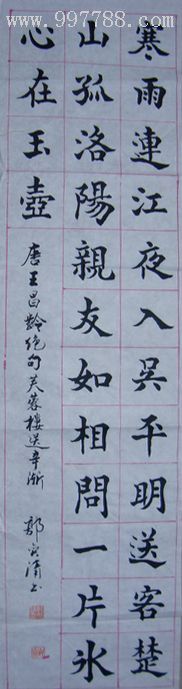 寒雨連江夜入吴平明送客楚
山孤洛陽親友如相問一片冰
心在玉壺
唐王昌齡絶句芙蓉樓送辛漸
www.997788.com